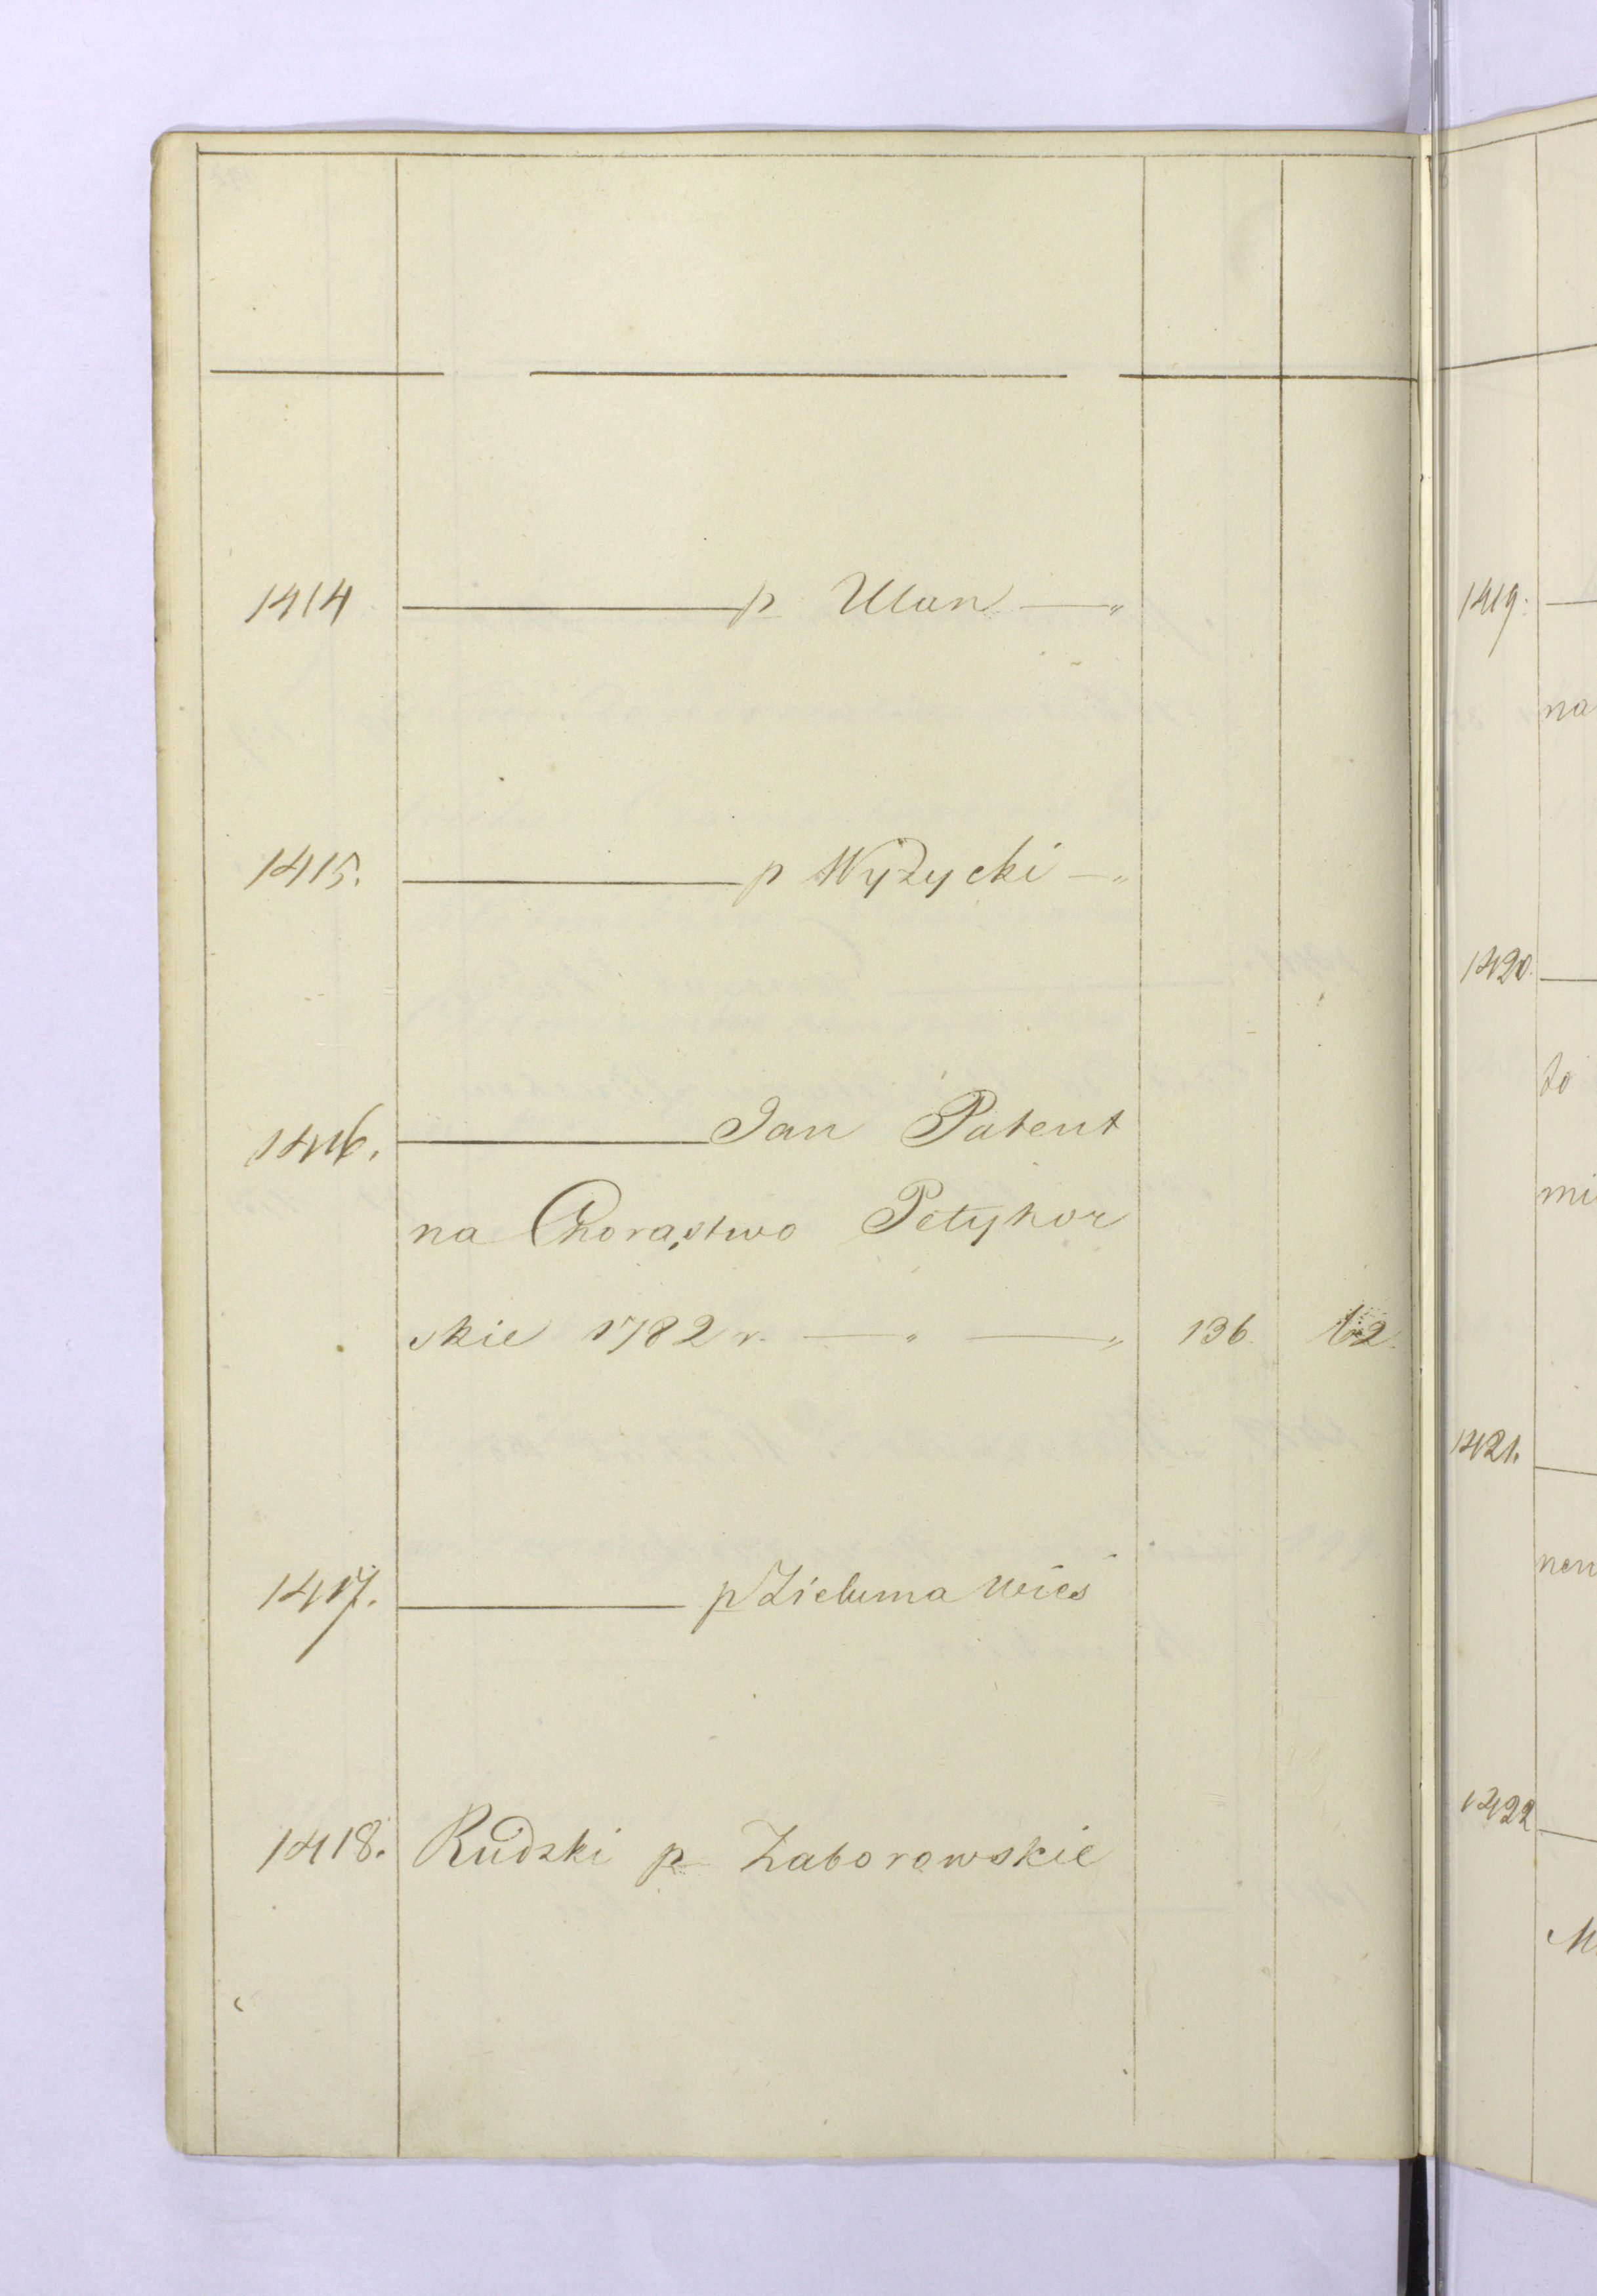 1414 ——— p Ulan — „
1415. ——— p Wyżycki — „
1416. ——— Jan Patent
na Chorąstwo Petyhor
skie 1782 r. — „ — „ 136. 62.
1417. ——— p Zieluma Wieś
1418. Rudzki p Zaborowskie
1419.
na
1420.
to
1421.
1422